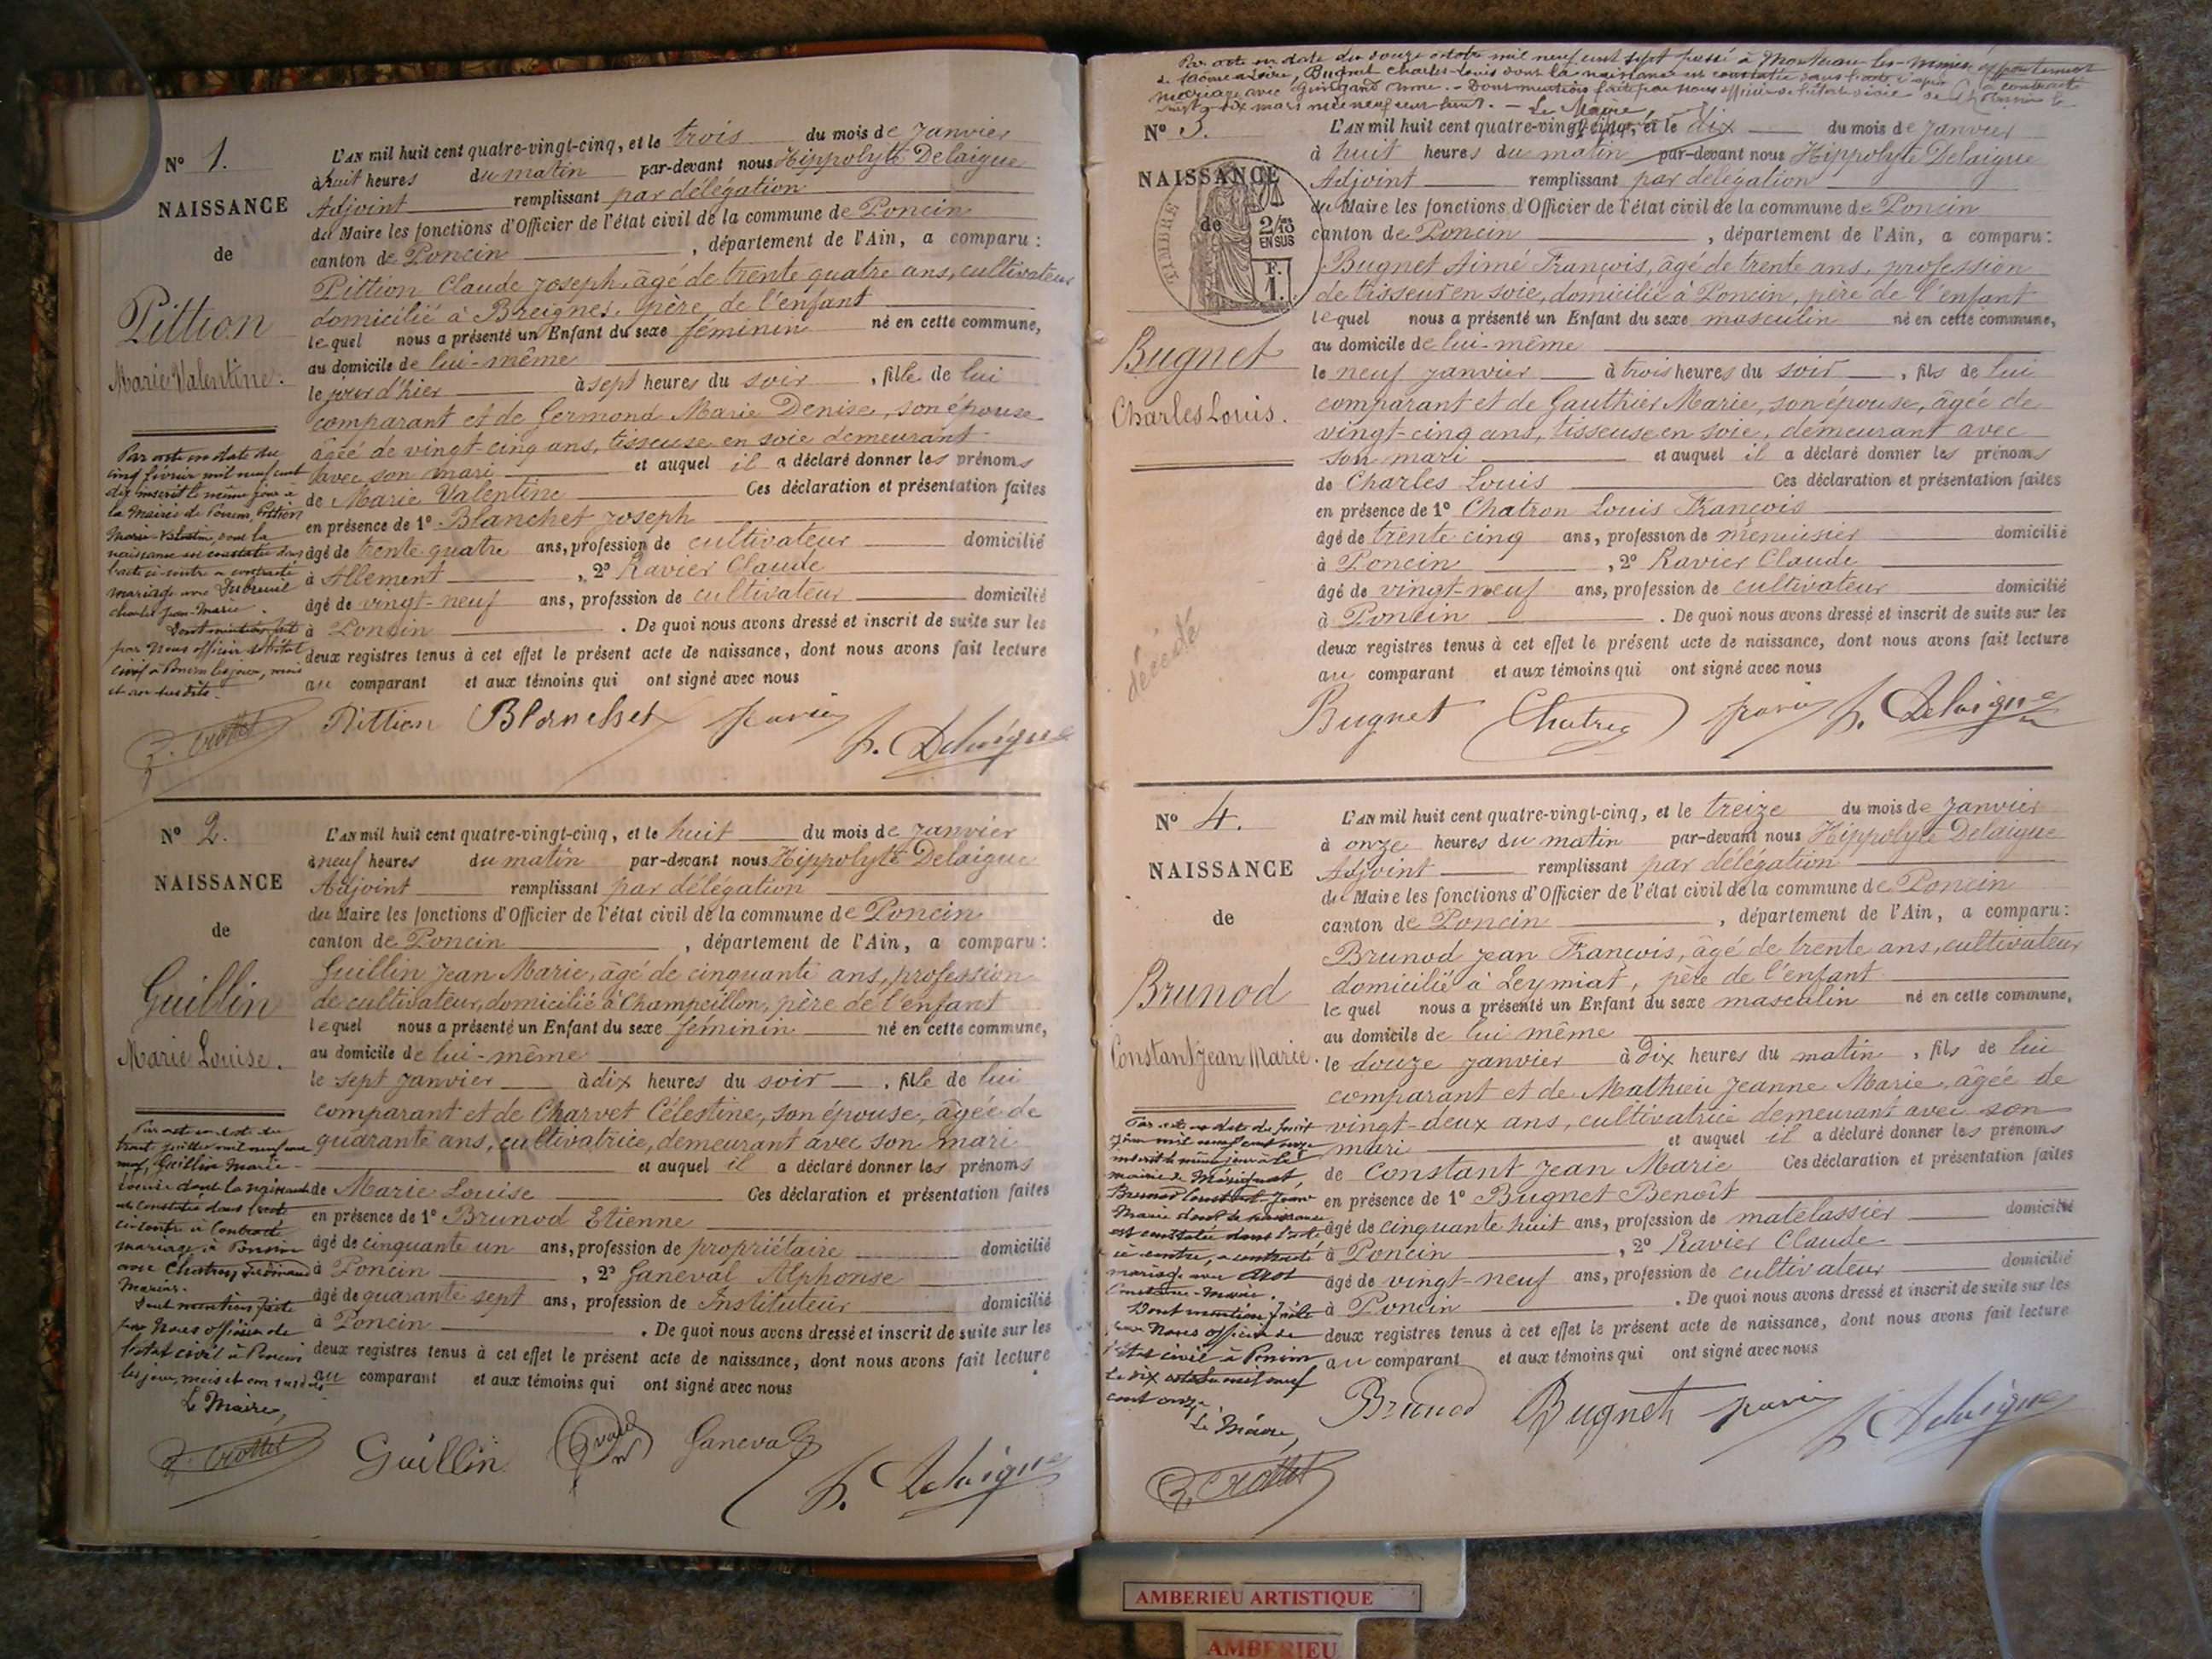 N° 1.
NAISSANCE
de
Pittion
Marie Valentine.
L'AN mil huit cent quatre-vingt-cinq, et le trois du mois de Janvier
à huit heures du matin par-devant nous Hippolyte Delaigue
Adjoint remplissant par délégation
du Maire les fonctions d'Officier de l'état civil de la commune de Poncin
canton de Poncin, département de l'Ain, a comparu :
Pittion Claude Joseph, âgé de trente quatre ans, cultivateur
domicilié à Breignes, père de l'enfant
lequel nous a présenté un Enfant du sexe féminin né en cette commune,
au domicile de lui-même
le jour d'hier à sept heures du soir, fille de lui
comparant et de Germond Marie Denise, son épouse
âgée de vingt-cinq ans, tisseuse en soie demeurant
avec son mari et auquel il a déclaré donner les prénoms
de Marie Valentine Ces déclaration et présentation faites
en présence de 1° Blanchet Joseph
âgé de trente quatre ans, profession de cultivateur domicilié
à Allement, 2° Ravier Claude
âgé de vingt-neuf ans, profession de cultivateur domicilié
à Poncin. De quoi nous avons dressé et inscrit de suite sur les
deux registres tenus à cet effet le présent acte de naissance, dont nous avons fait lecture
au comparant et aux témoins qui ont signé avec nous
Par acte en date du
cinq février mil neuf cent
dix inscrit le même jour à
la Mairie de Poncin, Pittion
Marie-Valentine, dont la
naissance est constatée dans
l'acte ci-contre a contracté
mariage avec Dubreuil
Charles Jean-Marie.
Dont mention fait
par Nous officier de l'état
civil à Poncin les jour, mois
et an susdits.
Z. Crottet
Pittion Blanchet Ravier h. Delaigue
N° 2.
NAISSANCE
de
Guillin
Marie Louise.
L'AN mil huit cent quatre-vingt-cinq, et le huit du mois de Janvier
à neuf heures du matin par-devant nous Hippolyte Delaigue
Adjoint remplissant par délégation
du Maire les fonctions d'Officier de l'état civil de la commune de Poncin
canton de Poncin, département de l'Ain, a comparu :
Guillin Jean Marie, âgé de cinquante ans, profession
de cultivateur, domicilié à Champeillon, père de l'enfant
lequel nous a présenté un Enfant du sexe féminin né en cette commune,
au domicile de lui-même
le sept Janvier à dix heures du soir, fille de lui
comparant et de Charvet Célestine, son épouse, âgée de
quarante ans, cultivatrice, demeurant avec son mari
et auquel il a déclaré donner les prénoms
de Marie Louise Ces déclaration et présentation faites
en présence de 1° Brunod Etienne
âgé de cinquante un ans, profession de propriétaire domicilié
à Poncin, 2° Ganeval Alphonse
âgé de quarante sept ans, profession de Instituteur domicilié
à Poncin. De quoi nous avons dressé et inscrit de suite sur les
deux registres tenus à cet effet le présent acte de naissance, dont nous avons fait lecture
au comparant et aux témoins qui ont signé avec nous
Par acte en date du
trente juillet mil neuf cent
neuf, Guillin Marie-
Louise dont la naissance
est constatée dans l'acte
ci-contre a contracté
mariage à Poncin
avec Ferdinand
Marius.
Dont mention faite
par Nous officier de
l'état civil à Poncin
les jour, mois et an susdits
Le Maire,
Z. Crottet
Guillin Brunod Ganeval h. Delaigue
Par acte en date du douze octobre mil neuf cent sept passé à Montceau-les-Mines, département
de Saône et Loire, Bugnet Charles-Louis dont la naissance est constatée dans l'acte ci-après a contracté
mariage avec . - Dont mention faite par nous officier de l'état civil de Poncin le
dix mars mil neuf cent huit. - Le Maire,
N° 3.
NAISSANCE
de
TIMBRE
2/10
EN SUS
F.
1.
Bugnet
Charles Louis.
décédé
L'AN mil huit cent quatre-vingt-cinq, et le dix du mois de Janvier
à huit heures du matin par-devant nous Hippolyte Delaigue
Adjoint remplissant par délégation
du Maire les fonctions d'Officier de l'état civil de la commune de Poncin
canton de Poncin, département de l'Ain, a comparu :
Bugnet Aimé François, âgé de trente ans, profession
de tisseur en soie, domicilié à Poncin, père de l'enfant
lequel nous a présenté un Enfant du sexe masculin né en cette commune,
au domicile de lui-même
le neuf Janvier à trois heures du soir, fils de lui
comparant et de Gauthier Marie, son épouse, âgée de
vingt-cinq ans, tisseuse en soie, demeurant avec
son mari et auquel il a déclaré donner les prénoms
de Charles Louis Ces déclaration et présentation faites
en présence de 1° Chatron Louis François
âgé de trente cinq ans, profession de menuisier domicilié
à Poncin, 2° Ravier Claude
âgé de vingt-neuf ans, profession de cultivateur domicilié
à Poncin. De quoi nous avons dressé et inscrit de suite sur les
deux registres tenus à cet effet le présent acte de naissance, dont nous avons fait lecture
au comparant et aux témoins qui ont signé avec nous
Bugnet Chatron Ravier h. Delaigue
N° 4.
NAISSANCE
de
Brunod
Constant Jean Marie.
L'AN mil huit cent quatre-vingt-cinq, et le treize du mois de Janvier
à onze heures du matin par-devant nous Hippolyte Delaigue
Adjoint remplissant par délégation
du Maire les fonctions d'Officier de l'état civil de la commune de Poncin
canton de Poncin, département de l'Ain, a comparu :
Brunod Jean François, âgé de trente ans, cultivateur
domicilié à Leymiat, père de l'enfant
lequel nous a présenté un Enfant du sexe masculin né en cette commune,
au domicile de lui même
le douze Janvier à dix heures du matin, fils de lui
comparant et de Mathieu Jeanne Marie, âgée de
vingt-deux ans, cultivatrice demeurant avec son
mari et auquel il a déclaré donner les prénoms
de Constant Jean Marie Ces déclaration et présentation faites
en présence de 1° Bugnet Benoît
âgé de cinquante huit ans, profession de matelassier domicilié
à Poncin, 2° Ravier Claude
âgé de vingt-neuf ans, profession de cultivateur domicilié
à Poncin. De quoi nous avons dressé et inscrit de suite sur les
deux registres tenus à cet effet le présent acte de naissance, dont nous avons fait lecture
au comparant et aux témoins qui ont signé avec nous
Par acte en date du huit
mil neuf cent onze
inscrit le même jour à la
mairie de Mérignat,
Brunod Constant-Jean
Marie dont la naissance
est constatée dans l'acte
ci-contre, a contracté
mariage avec
Dont mention faite
par Nous officier de
l'état civil à Poncin
Le dix mil neuf
cent onze
Le Maire,
Z. Crottet
Brunod Bugnet Ravier h. Delaigue
AMBERIEU ARTISTIQUE
AMBERIEU